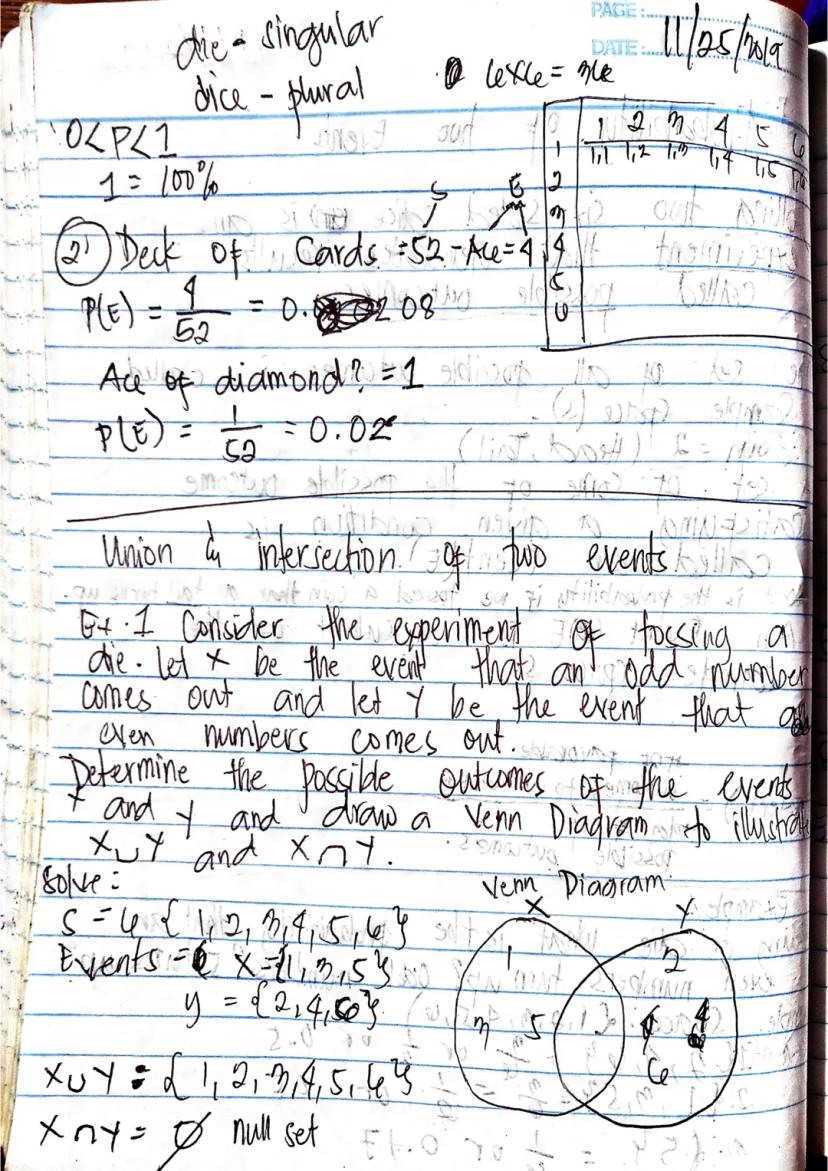 PAGE:
DATE: 11/25/2019
die - singular
dice - plural
6x6 = 36
0<P<1
1 = 100%
1 2 3 4 5 6
1 1,1 1,2 1,3 1,4 1,5 1,6
2
3
4
5
6
S E
2) Deck of Cards = 52 - Ace = 4
P(E) = 4/52 = 0.08
Ace of diamond? = 1
P(E) = 1/52 = 0.02
Union & intersection of two events
Ex. 1 Consider the experiment of tossing a
die. Let X be the event that an odd number
comes out and let Y be the event that
even numbers comes out.
Determine the possible outcomes of the events
X and Y and draw a Venn Diagram to illustrate
X∪Y and X∩Y.
Solve:
Venn Diagram
S = 6 {1, 2, 3, 4, 5, 6}
Events = X = {1, 3, 5}
y = {2, 4, 6}
X∪Y = {1, 2, 3, 4, 5, 6}
X∩Y = ∅ null set
X Y
1 2
3 5 4
6